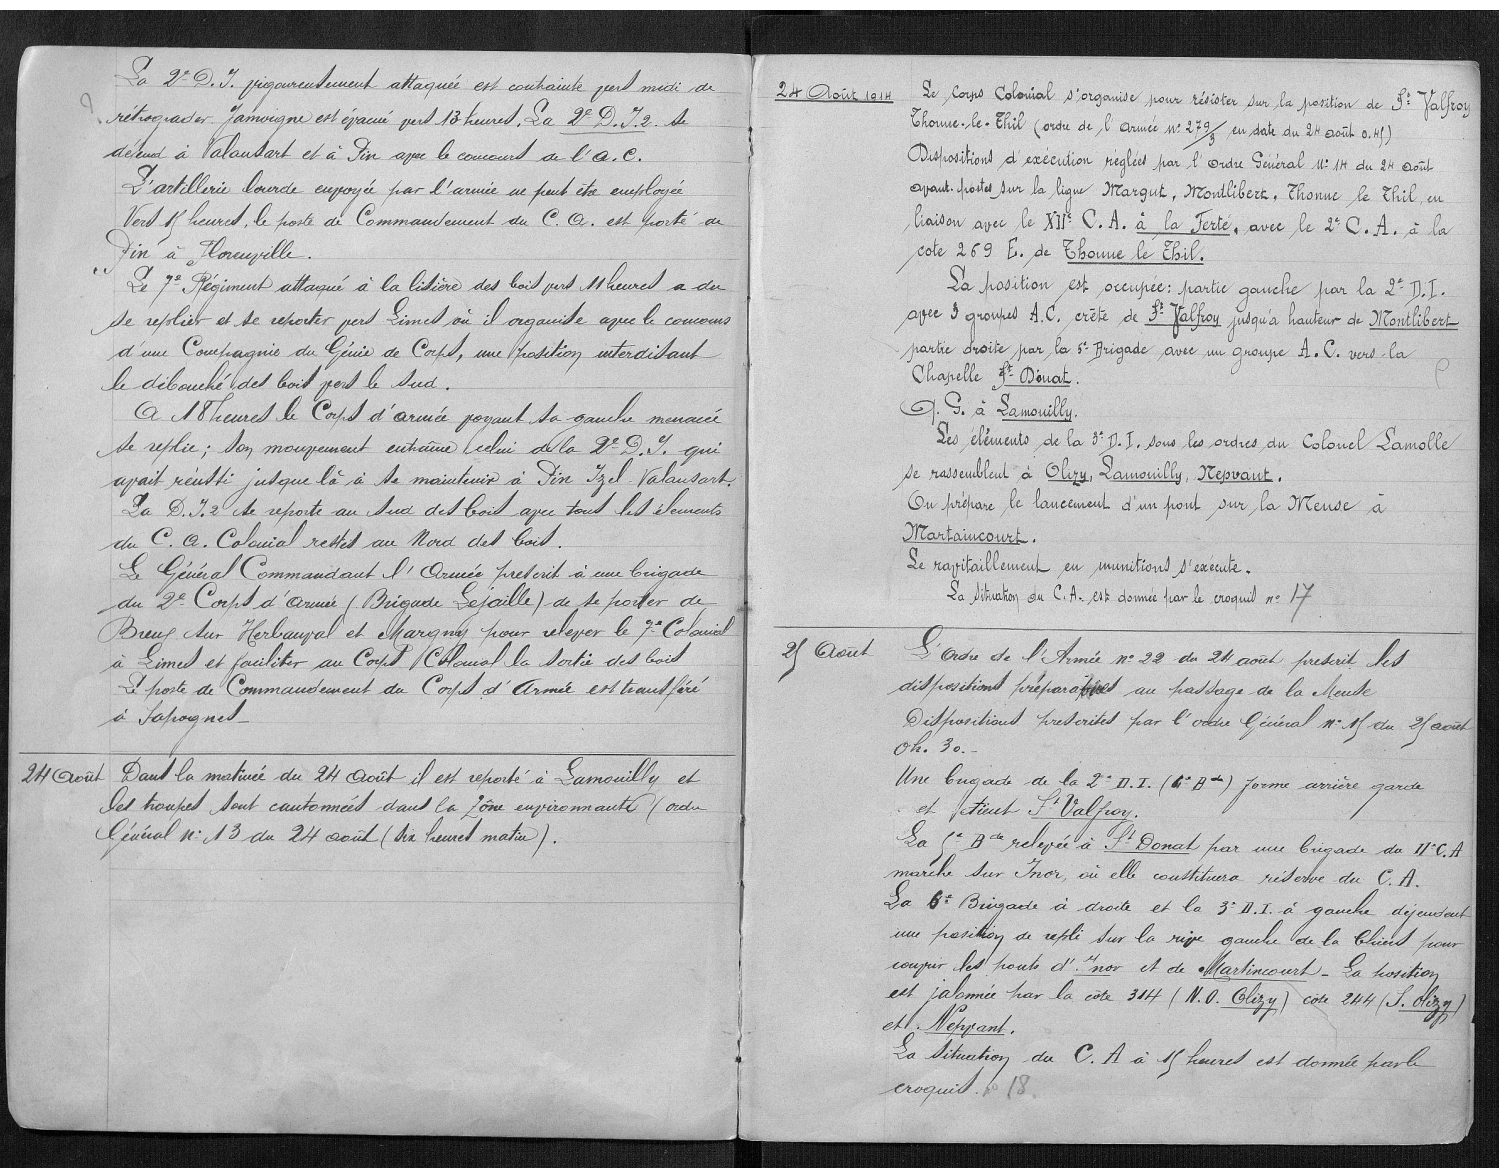 La 2e D.I. vigoureusement attaquée est contrainte vers midi de
rétrograder Jamoigne est évacué vers 13 heures. La 2e D.I.2. se
défend à Valansart et à Pin avec le concours de l'A.C.
L'artillerie lourde envoyée par l'armée ne peut être employée
Vers 15 heures, le poste de Commandement du C.A. est porté de
Pin à Florenville.
Le 7e Régiment attaqué à la lisière des bois vers 11 heures a du
se replier et se reporter vers Limes où il organise avec le concours
d'une Compagnie du Génie de Corps, une position interdisant
le débouché des bois vers le Sud.
A 18 heures le Corps d'armée voyant sa gauche menacée
se replie ; son mouvement entraîne celui de la 2e D.I. qui
avait réussi jusque là à se maintenir à Pin Izel Valansart.
La D.I.2 se reporte au Sud des bois avec tous les élements
du C.A. Colonial restés au Nord des bois.
Le Général Commandant l'Armée prescrit à une brigade
du 2e Corps d'armée (Brigade Lejaille) de se porter de
Breux sur Herbeuval et Margny pour relever le 7e Colonial
à Limes et faciliter au Corps Colonial la sortie des bois
Le poste de Commandement du Corps d'Armée est transféré
à Sapognes_
24 Août Dans la matinée du 24 Août il est reporté à Lamouilly et
les troupes sont cantonnées dans la zône environnante (ordre
Général n° 13 du 24 août (six heures matin).
24 Août 1914 Le Corps Colonial s'organise pour résister sur la position de St Valfroy
Thonne-le-Thil (ordre de l'Armée n° 279/3 en date du 24 août 0.45)
Dispositions d'exécution réglées par l'ordre Général N° 14 du 24 août
avant-postes sur la ligne Margut, Montlibert, Thonne le Thil, en
liaison avec le XIIe C.A. à la Ferté, avec le 2e C.A. à la
cote 269 E. de Thonne le Thil.
La position est occupée : partie gauche par la 2e D.I.
avec 3 groupes A.C. crête de St Valfroy jusqu'à hauteur de Montlibert
partie droite par la 5e Brigade avec un groupe A.C. vers la
Chapelle St Donat.
Q.G. à Lamouilly.
Les éléments de la 3e D.I. sous les ordres du Colonel Lamolle
se rassemblent à Olizy, Lamouilly, Nepvant.
On prépare le lancement d'un pont sur la Meuse à
Martaincourt.
Le ravitaillement en munitions s'exécute.
La situation du C.A. est donnée par le croquis n° 17
25 Août L'Ordre de l'Armée n° 22 du 24 août prescrit les
dispositions préparatoires au passage de la Meuse
Dispositions prescrites par l'ordre Général n° 15 du 25 août
0h. 30.-
Une brigade de la 2e D.I. (6e Bde) forme arrière garde
et tient St Valfroy.
La 5e Bde relevée à St Donat par une brigade du IIe C.A
marche sur Inor, où elle constituera réserve du C.A.
La 6e Brigade à droite et la 3e D.I. à gauche défendent
une position de repli sur la rive gauche de la Chiers pour
couvrir les ponts d'Inor et de Martincourt - La position
est jalonnée par la côte 314 (N.O. Olizy) côte 244 (S. Olizy)
et Nepvant.
La situation du C.A à 15 heures est donnée par le
croquis n° 18.